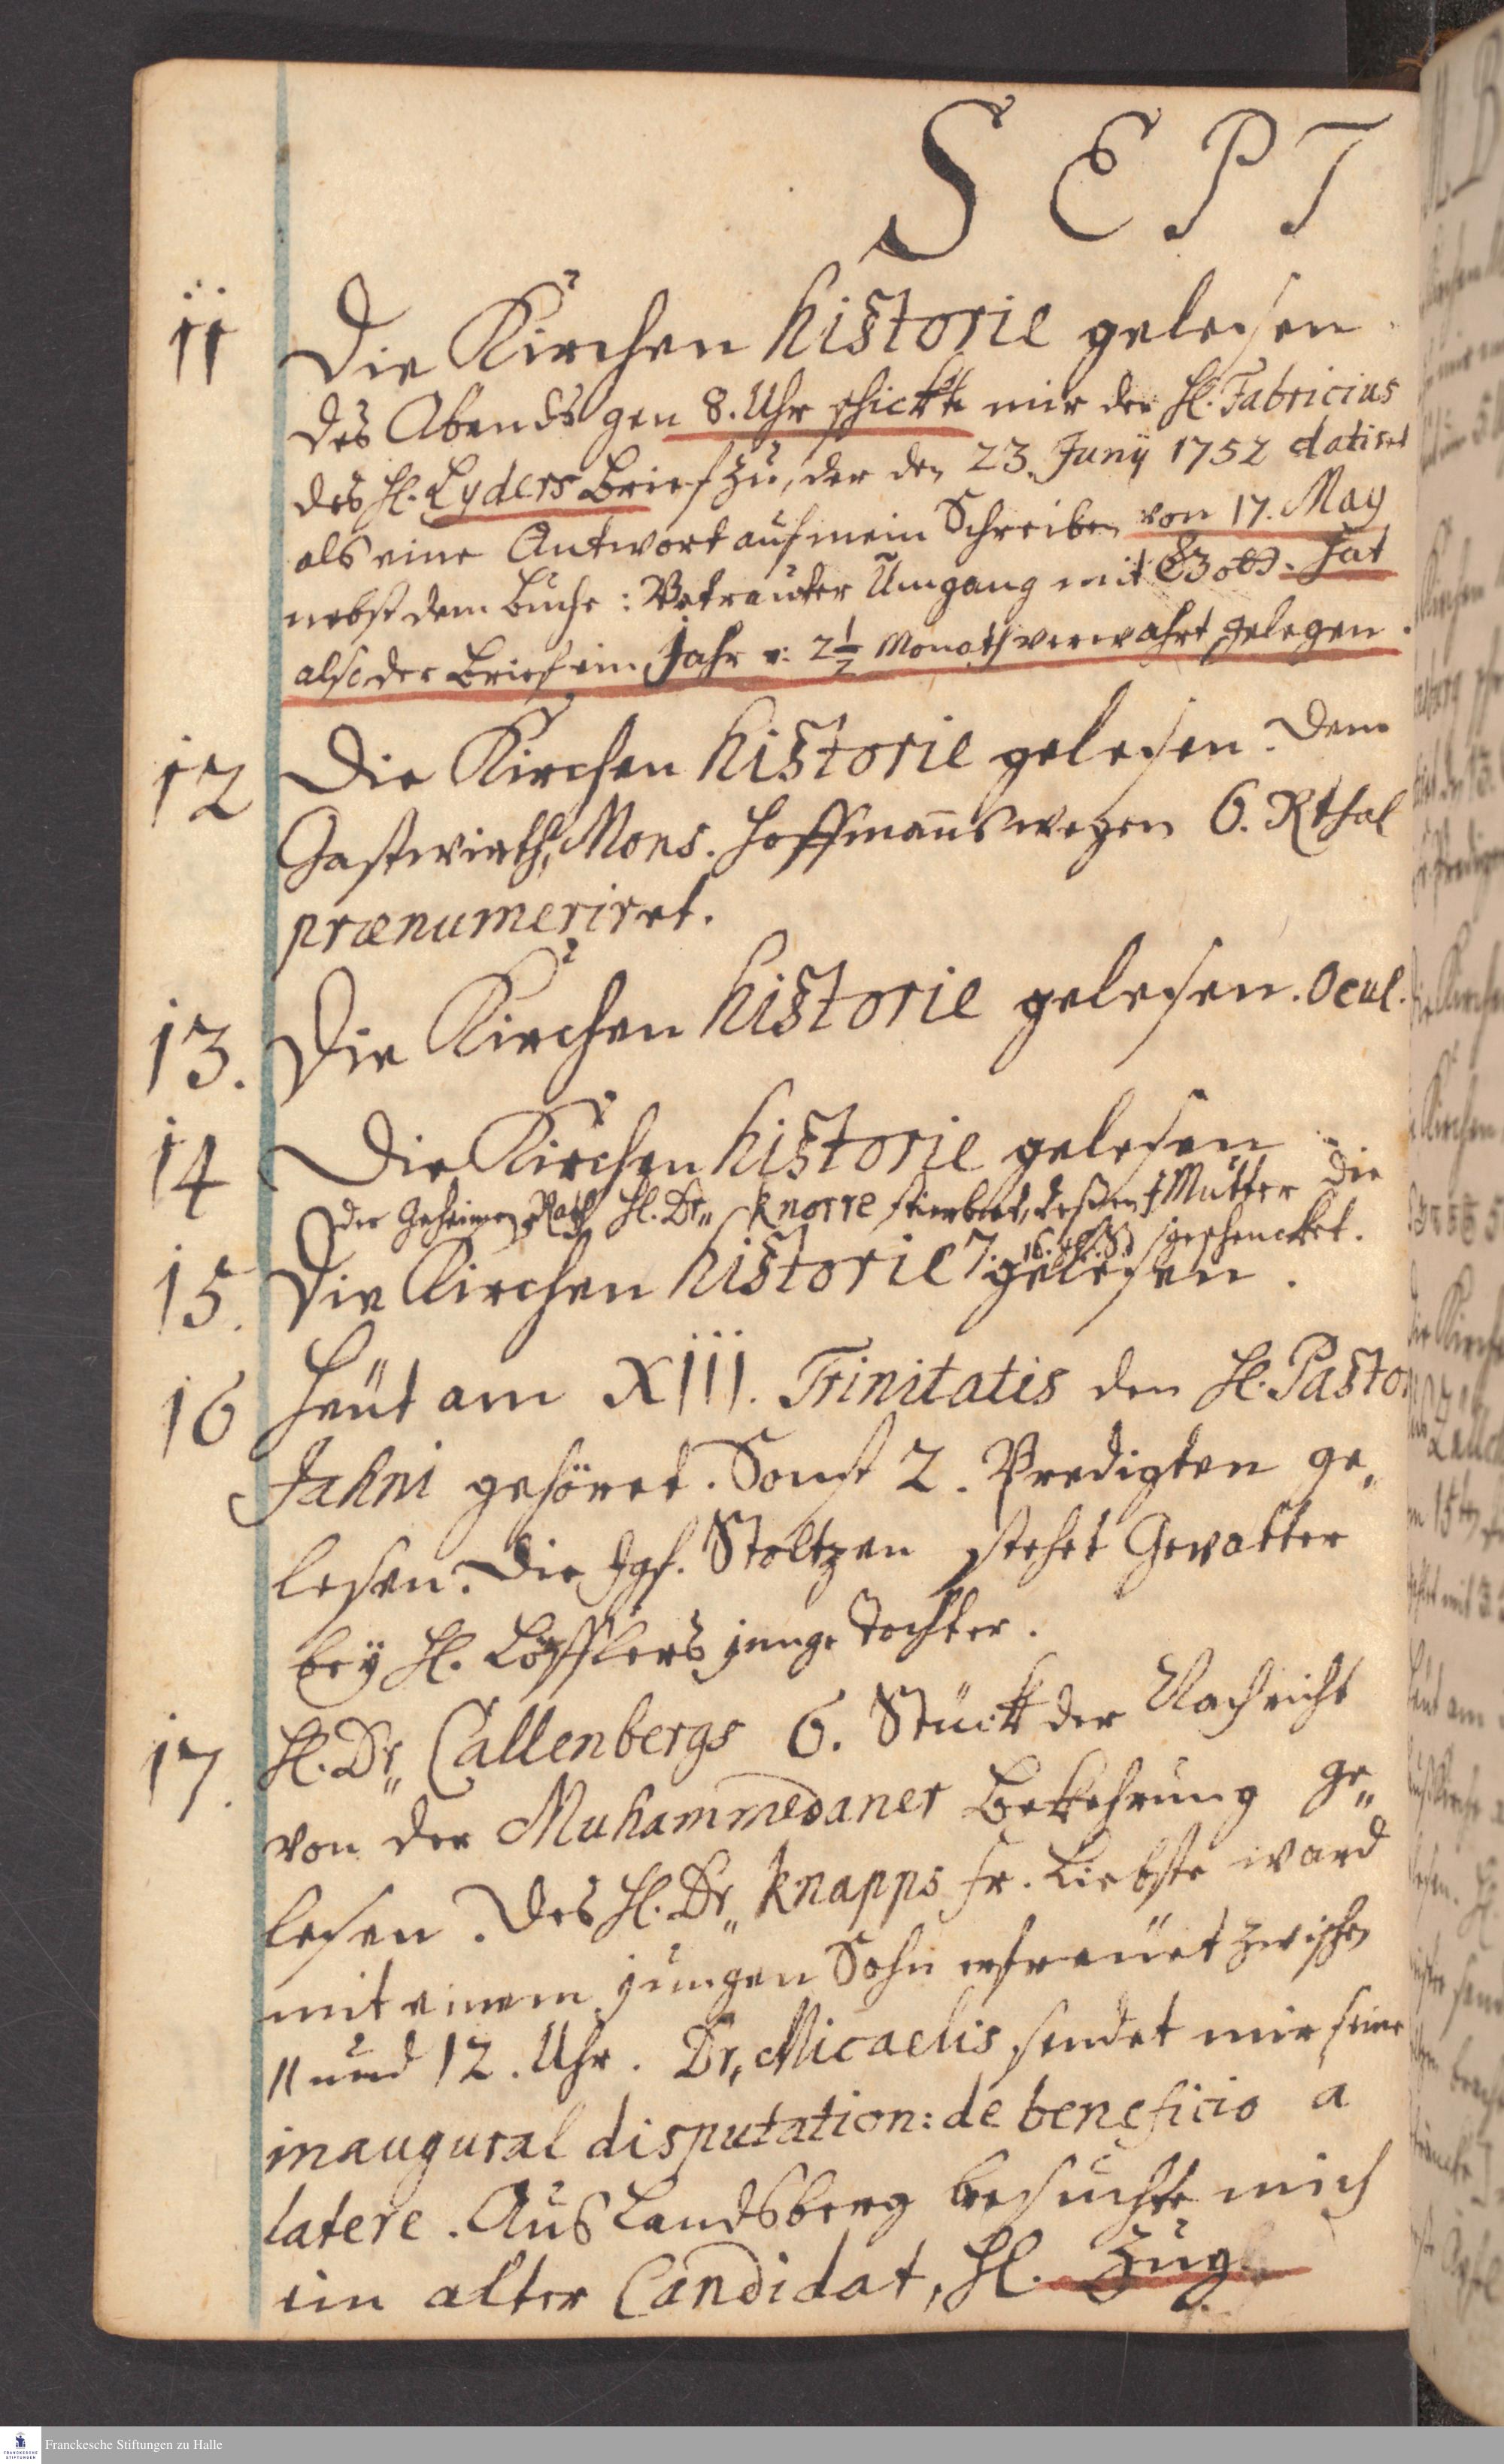 SEPT
11 Die Kirchen historie gelesen.
des Abends gen 8. Uhr schickte mir der H. Fabricius
des H. Lyders Brief zu, der den 23. Junij 1752 datiret
als eine Antwort auf mein Schreiben von 17. May
nebst dem Buche: Vertrauter Umgang mit Gott. hat
also der Brief ein Jahr u: 2 1/2 Monath verwahrt gelegen.
12 Die Kirchen historie gelesen. dem
Gastwirth, Mons. Hoffmanns wegen 6. Rthal
prænumeriret.
13. Die Kirchen historie gelesen. Ocul.
14 Die Kirchen historie gelesen
der Geheime Rath H. Dr. Knorre stirbet, deßen Mutter die
16. geschencket.
15. Die Kirchen historie gelesen.
16 Heut am XIII. Trinitatis den H. Pastor
Jahni gehöret. Sonst 2. Predigten ge„
lesen. Die Jgf. Stoltzen stehet Gevatter
bey H. Löfflers junge Tochter.
17. H. Dr„ Callenbergs 6. Stück der Nachricht
von der Muhammedaner Bekehrung ge„
lesen. Des H. Dr„ Knapps Fr. Liebste ward
mit einem jungen Sohn erfreuet zwischen
11 und 12. Uhr. Dr, Micaelis sendet mir seine
inaugural disputation: de beneficio a
latere. Aus Landsberg besuchte mich
ein alter Candidat, H. Zug
Franckesche Stiftungen zu Halle